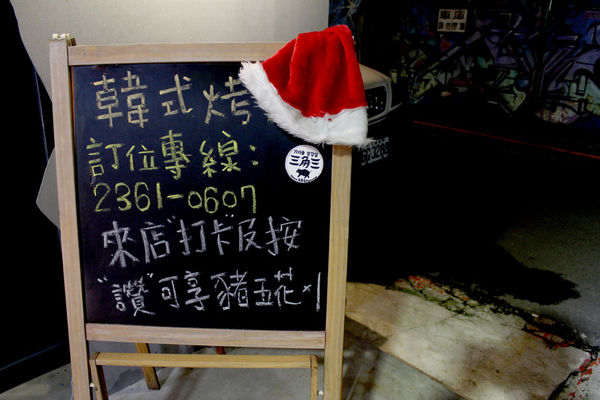 韓式烤
訂位專線：
2361-0607
來店"打卡"及按
"讚"可享豬五花×1
三角三